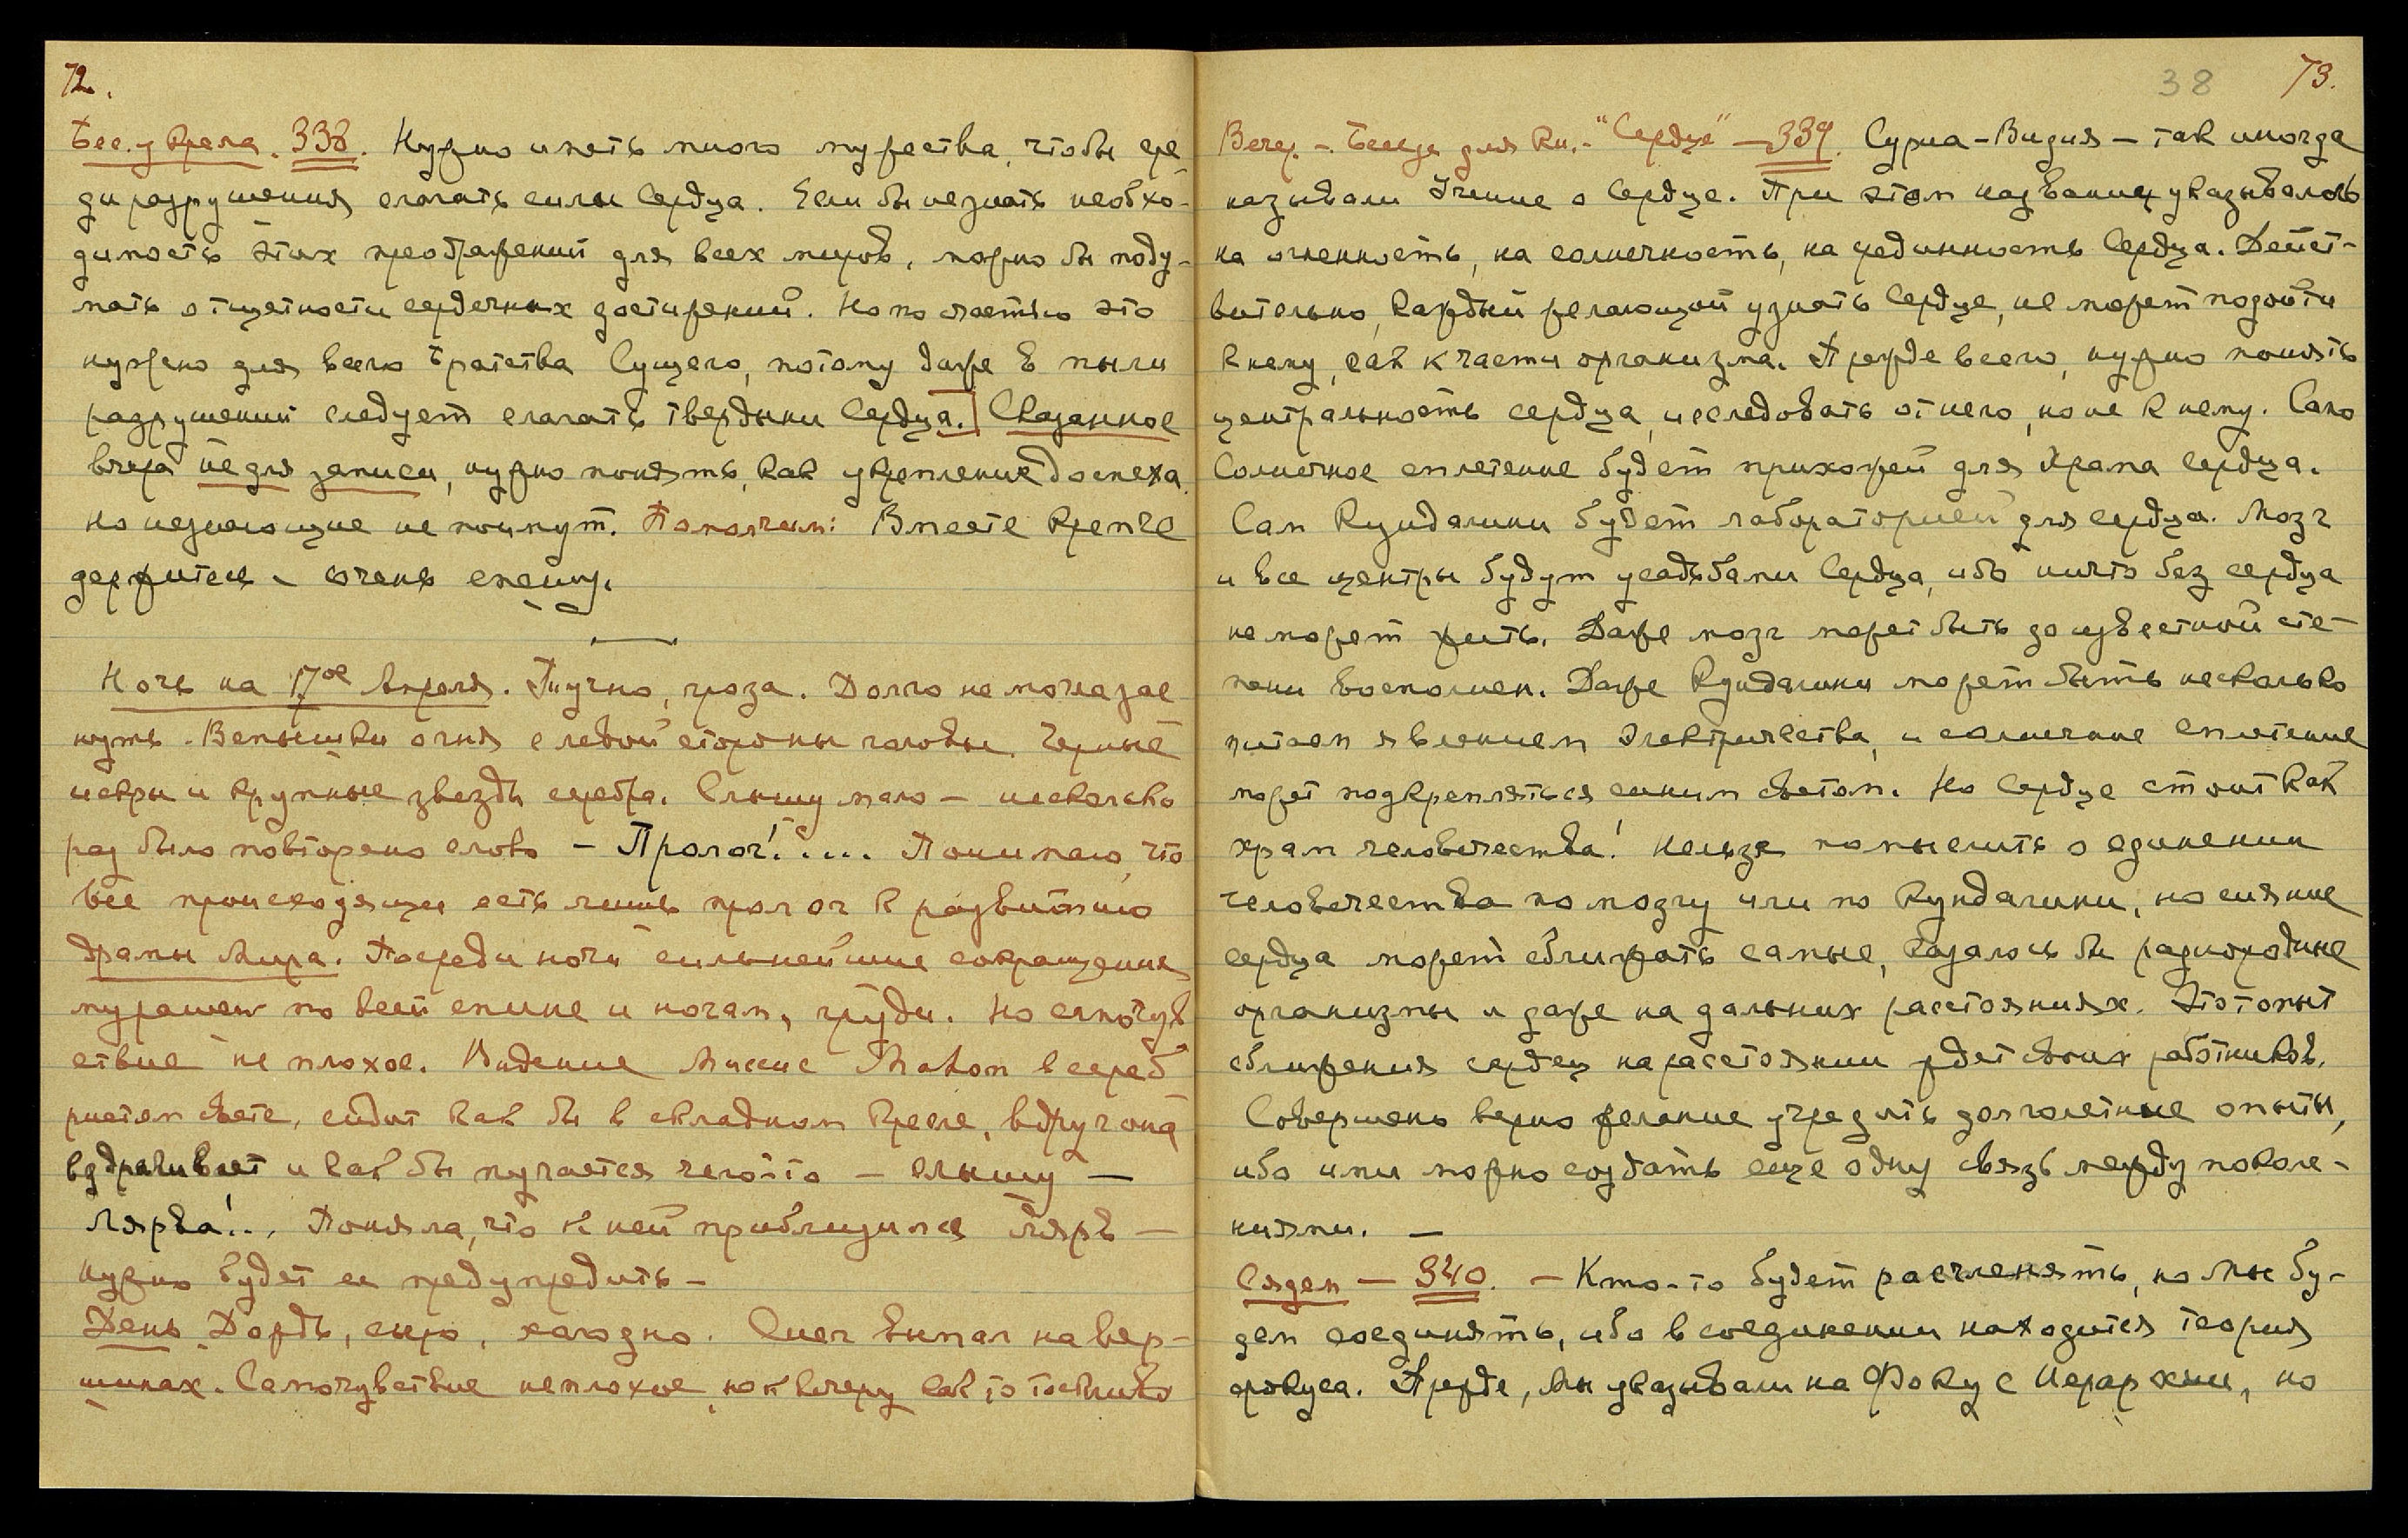 72.
Бес. у Кресла. 338. Нужно иметь много мужества, чтобы сре
ди разрушения слагать силы Сердца. Если бы не знать необхо-
димость этих преображений для всех миров, можно бы поду-
мать о тщетности сердечных достижений. Но по счастью это
нужно для всего Братства Сущего, потому даже в пыли
разрушений следует слагать твердыни Сердца.] Сказанное
вчера не для записи, нужно понять, как укрепление доспеха.
Но незнающие не поймут. Помолчим: Вместе крепче
держитесь – очень спешу.
Ночь на 17ое Апреля. Тучно, гроза. Долго не могла зас
нуть. Вспышки огня с левой стороны головы. Черные
искры и крупные звезды серебра. Слышу мало – несколько
раз было повторено слово – Пролог!.... Понимаю, что
все происходящее есть лишь пролог к развитию
драмы Мира. Посреди ночи сильнейшие сокращения
по всей спине и ногам, груди. Но самочув
ствие не плохое. Видение Миссис в сереб
ристом свете, сидит как бы в складном кресле, вдруг она
вздрагивает и как бы пугается чего-то – слышу –
Лярва!.. Поняла, что к ней приблизился Лярв –
Нужно будет ее предупредить –
День. Дождь, сыро, холодно. Снег выпал на вер-
шинах. Самочувствие неплохое, но к вечеру как то тоскливо
38 73.
Вечер. – Беседа для Кн.– "Сердце" – 339. Суриа-Видия – так иногда
называли Учение о Сердце. При этом названии указывалось
на огненность, на солнечность, на срединность Сердца. Дейст-
вительно, каждый желающий узнать Сердце, не может подойти
к нему, как к части организма. Прежде всего, нужно понять
центральность сердца, и следовать от него, но не к нему. Само
Солнечное сплетение будет прихожей для Храма сердца.
Сам Кундалини будет лабораторией для сердца. Мозг
и все центры будут усадьбами Сердца, ибо ничто без сердца
не может жить. Даже мозг может быть до известной сте-
пени восполнен. Даже Кундалини может быть несколько
питаем явлением Электричества, и солнечное сплетение
может подкрепляться синим светом. Но Сердце стоит как
храм человечества! Нельзя помыслить о единении
человечества по мозгу или по Кундалини, но сияние
сердца может сближать самые, казалось бы разнородные
организмы и даже на дальних расстояниях. Этот опыт
сближения сердец на расстоянии ждет своих работников.
Совершенно верно желание учредить долголетние опыты,
ибо ими можно создать еще одну связь между поколе-
ниями. –
Сядем – 340. – Кто-то будет расчленять, но Мы бу-
дем соединять, ибо в соединении находится теория
фокуса. Прежде, Мы указывали на Фокус Иерархии, но